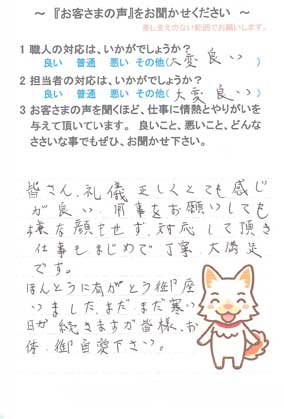 ～『お客さまの声』をお聞かせください ～
差し支えのない範囲でお願いします。
1 職人の対応は、いかがでしょうか?
良い 普通 悪い その他(大変良い)
2 担当者の対応は、いかがでしょうか?
良い 普通 悪い その他(大変良い)
3 お客さまの声を聞くほど、仕事に情熱とやりがいを
与えて頂いています。 良いこと、悪いこと、どんな
ささいな事でもぜひ、お聞かせ下さい。
皆さん、礼儀正しくとても感じ
が良い、用事をお願いしても
嫌な顔もせず、対応して頂き
仕事もまじめで丁寧、大満足
です。
ほんとうに有がとう御座
いました、まだ、まだ寒い
日が続きますが皆様、お
体、御自愛下さい。